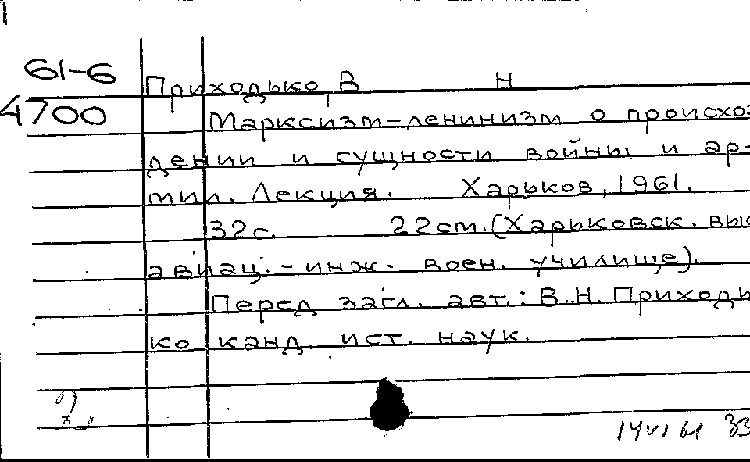 61-6
Приходько, В Н
4700
Марксизм-ленинизм о происхо
дении и сущности войны и ар-
мии. Лекция. Харьков, 1961.
32с. 22см. (Харьковск. выс
авиац.-инж. воен. училище).
Перед загл. авт.: В.Н. Приходь
ко канд. ист. наук.